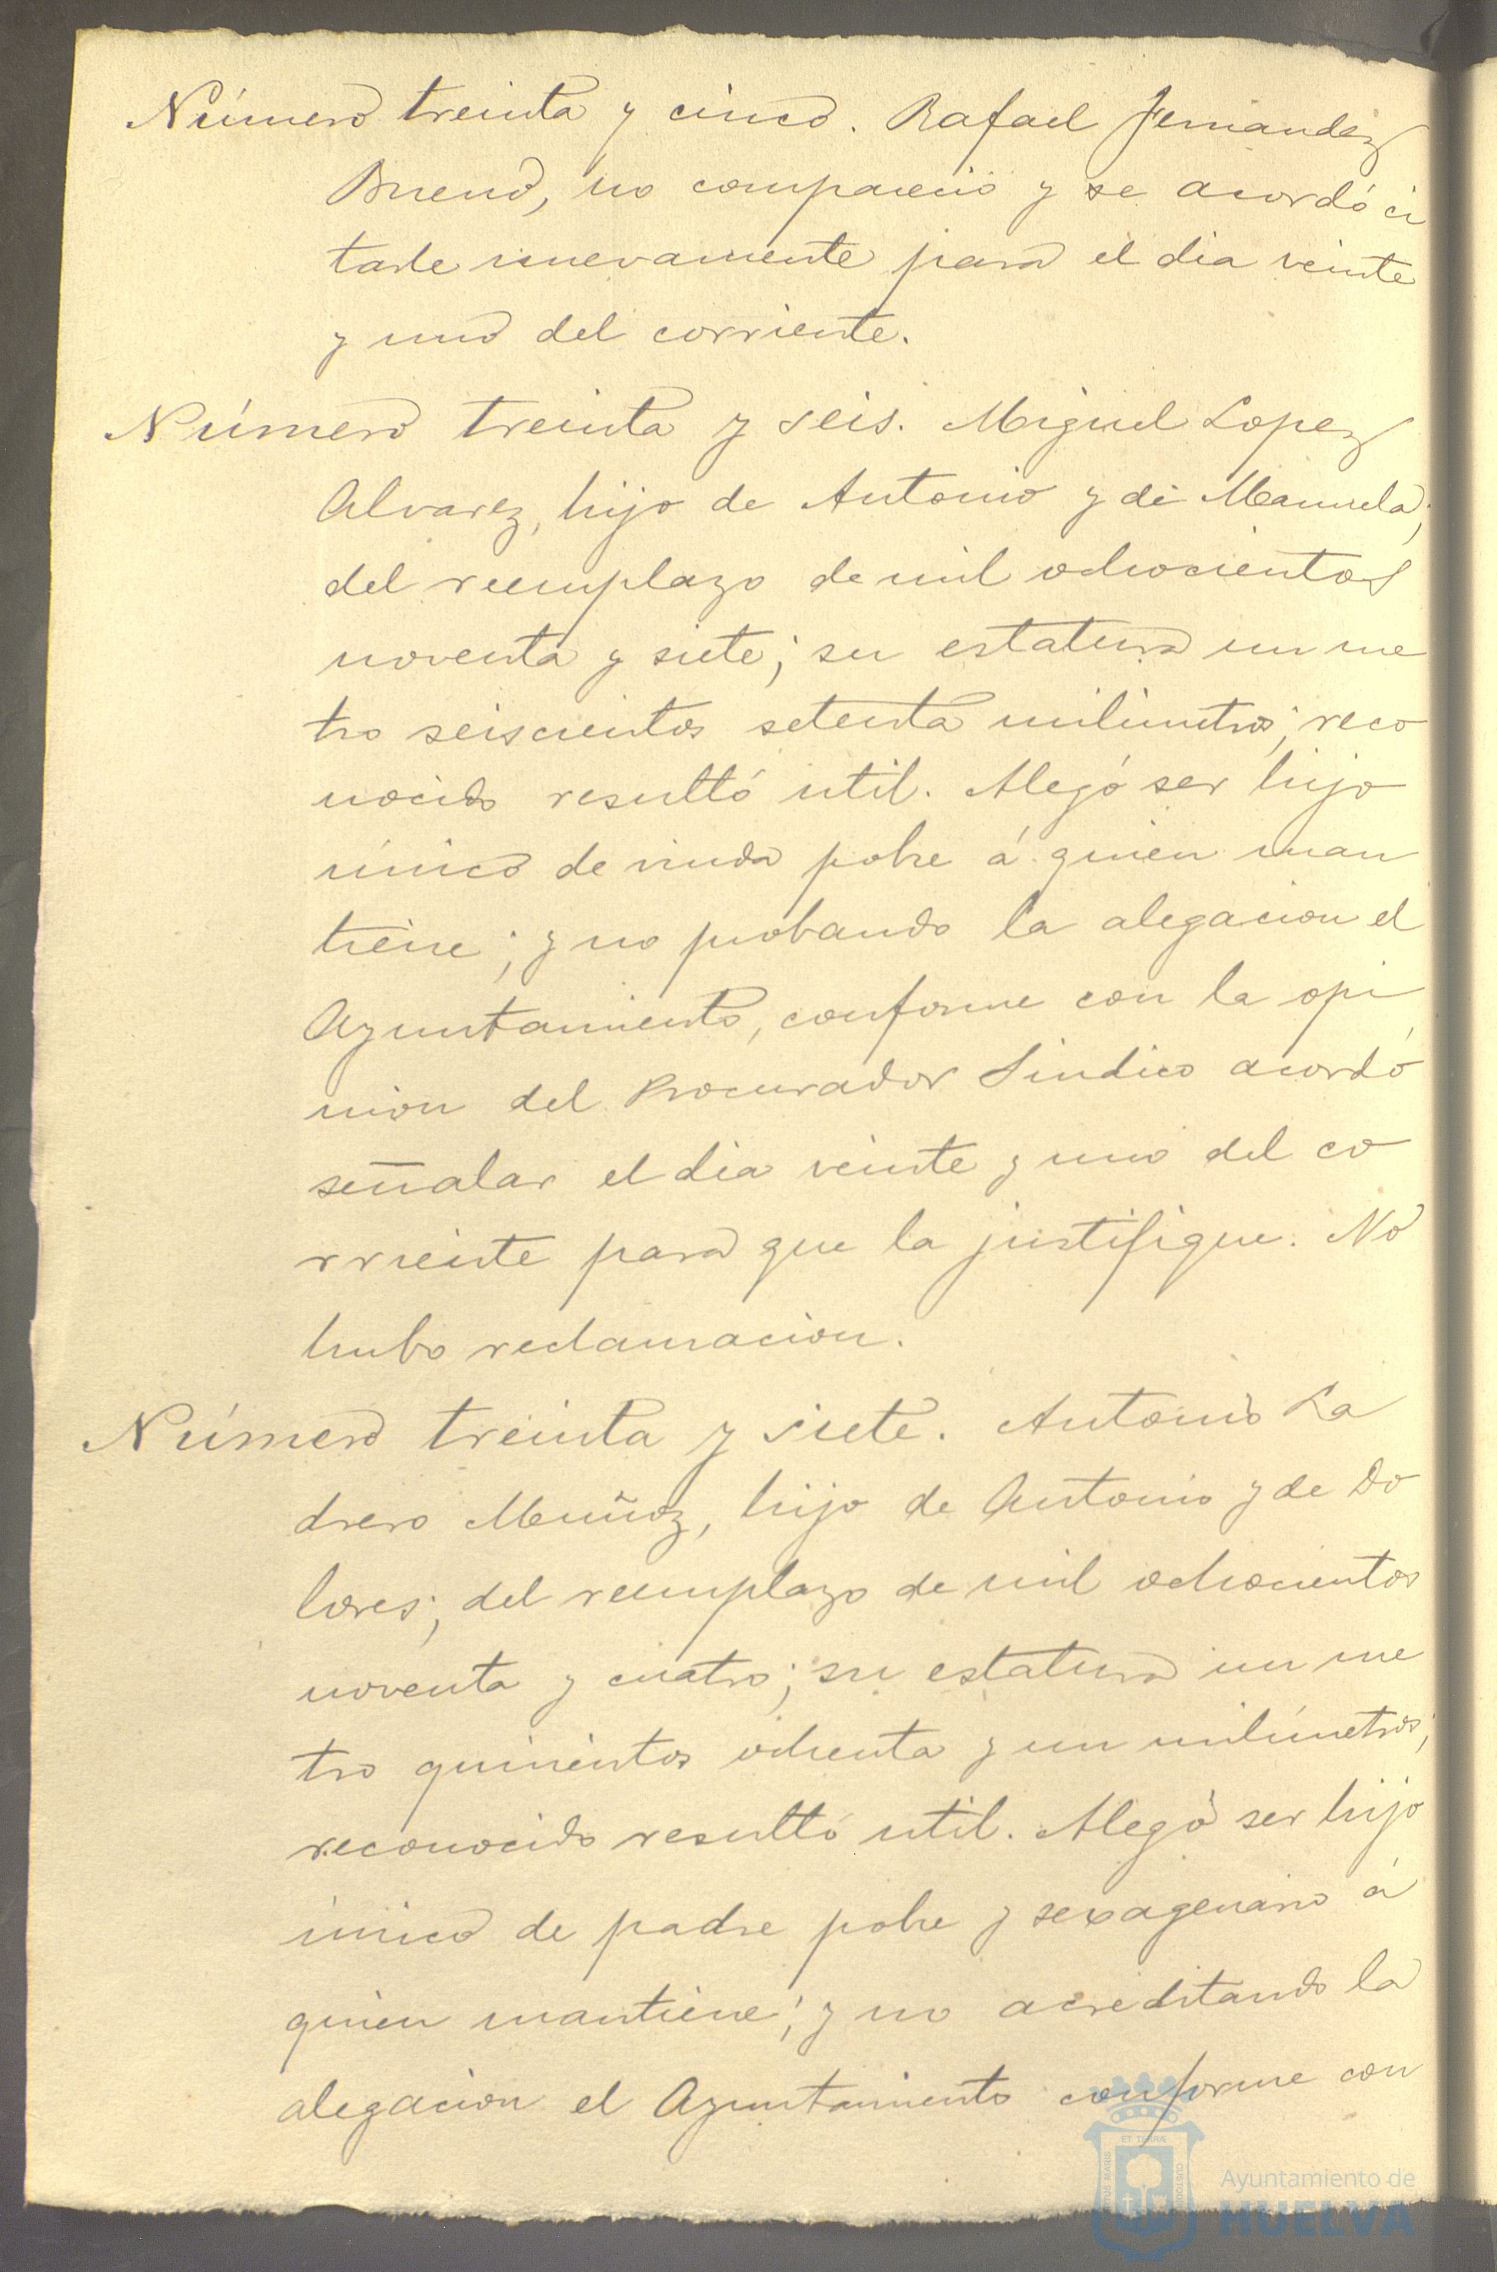 Número treinta y cinco. Rafael Fernandez
Bueno, no compareció y se acordó ci
tarle nuevamente para el dia veinte
y uno del corriente.
Número treinta y seis. Miguel Lopez
Alvarez, hijo de Antonio y de Manuela;
del reemplazo de mil ochocientos
noventa y siete; su estatura un me
tro seiscientos setenta milimetros; reco
nocido resultó util. Alegó ser hijo
único de viuda pobre á quien man
tiene; y no probando la alegacion el
Ayuntamiento, conforme con la opi
nion del Procurador Sindico acordó
señalar el dia veinte y uno del co
rriente para que la justifique. No
hubo reclamacion.
Número treinta y siete. Antonio La
drero Muñoz, hijo de Antonio y de Do
lores; del reemplazo de mil ochocientos
noventa y cuatro; su estatura un me
tro quinientos ochenta y un milímetros;
reconocido resultó util. Alegó ser hijo
único de padre pobre y sexagenario á
quien mantiene; y no acreditando la
alegacion el Ayuntamiento conforme con
Ayuntamiento de
HUELVA